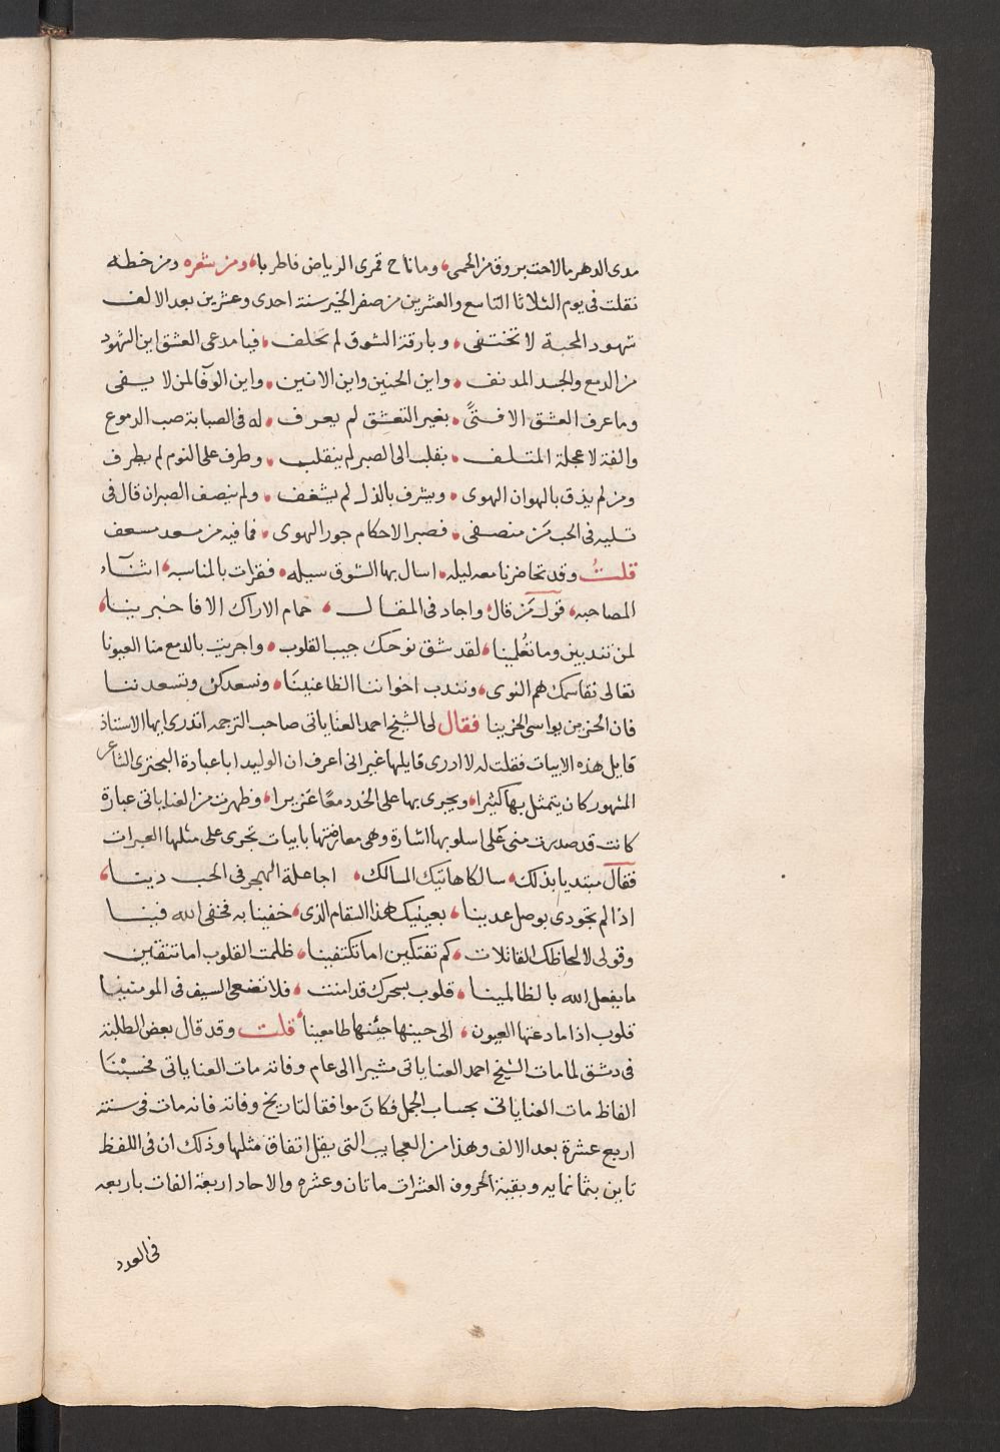 مدى الدهر ما لاحت بروق من الحمى، وما ناح قمرى الرياض فاطربا، ومن شعره ومن خطه
نقلت فى يوم الثلاثا التاسع والعشرين من صفر الخير سنة احدى وعشرين بعد الالف
شهود المحبة لا تختفى، وبارقة الشوق لم تخلف، فيا مدعى العشق اين الشهود
من الدمع والجسد المدنف، واين الحنين واين الانين، واين الوفا لمن لا يفى
وما عرف العشق الا فتىً، بغير التعشق لم يعرف، له فى الصبابة صب الدموع
والفة لا عجلة المتلف، بقلب الى الصبر لم ينقلب، وطرف على النوم لم يطرف
ومن لم يذق بالهوان الهوى، ويشرف بالذل لم يشغف، ولم ينصف الصب ان قال فى
تسليه فى الحب من منصفى، فصبرا لاحكام جور الهوى، فما فيه من مسعد مسعف
قلتُ وقد تحاضرنا معه ليله، اسال بها الشوق سيله، فقرات بالمناسبه، اثنآء
المصاحبه، قول من قال، واجاد فى المقال، حمام الاراك الا فاخبرينا،
لمن تندبين وما تُعلينا، لقد شق نوحك جيب القلوب، واجريت بالدمع منا العيونا
تعالى نقاسمك هم النوى، ونندب اخواننا الظاعنينَا، ونسعدكن وتسعدننا
فان الحزين يواسى الحزينا فقال لى الشيخ احمد العناياتى صاحب الترجمه اتدرى ايها الاستاذ
قايل هذه الابيات فقلت له لا ادرى قايلها غير انى اعرف ان الوليد ابا عبادة البحترى الشاعر
المشهور كان يتمثل بها كثيرا، ويجرى بها على الخد دمعًا غزيرا، وظهرت من العناياتى عبارة
كانت قد صدرت منى على اسلوبها اشارة وهى معارضتها بابيات تجرى على مثلها العبرات
فقال مبتديا بذلك، سالكا هاتيك المسالك، اجاعلة الهجر فى الحب دينا،
اذا لم تجودى بوصل عدينا، بعينيك هذا السقام الذى، خفينا به فخفى الله فينا
وقولى لالحاظك القاتلات، كم تفتكين اما تكتفينا، ظلمت القلوب اما تتقين
ما يفعل الله بالظالمينا، قلوب بسحرك قد امنت، فلا تضعى السيف فى المومنينا
قلوب اذا ما دعتها العيون، الى حينها جئنها طامعينا، قلت وقد قال بعض الطلبة
فى دمشق لما مات الشيخ احمد العناياتى مشيرا الى عام وفاته مات العناياتى فحسبْنَا
الفاظ مات العناياتى بحساب الجمل فكان موافقا لتاريخ وفاته فانه مات فى سنة
اربع عشرة بعد الالف وهذا من العجايب التى يقل اتفاق مثلها وذلك ان فى اللفظ
تاين بثمانمايه وبقية الحروف العشرات ماتان وعشره والاحاد اربعة الفات باربعه
فى العدد